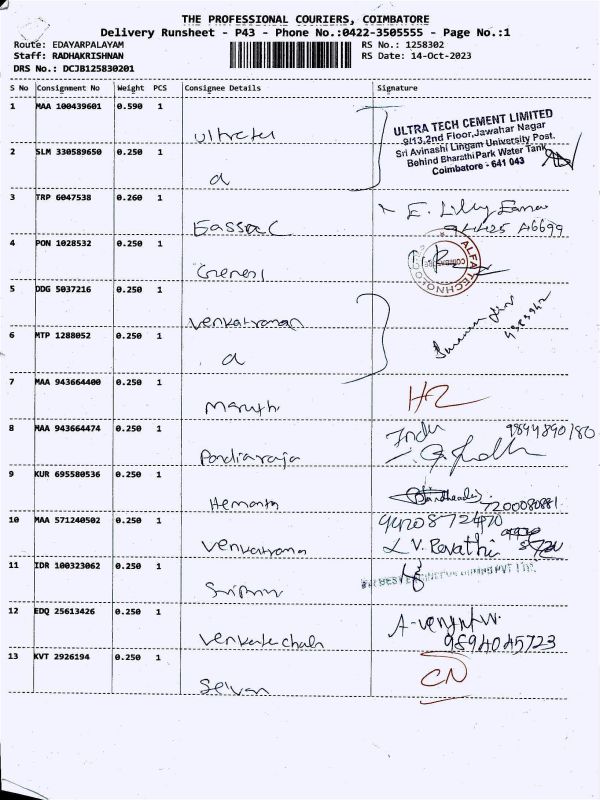 THE PROFESSIONAL COURIERS, COIMBATORE
Delivery Runsheet - P43 - Phone No.:0422-3505555 - Page No.:1
Route: EDAYARPALAYAM RS No.: 1258302
Staff: RADHAKRISHNAN RS Date: 14-Oct-2023
DRS No.: DCJB125830201
S No Consignment No Weight PCS Consignee Details Signature
1 MAA 100439601 0.590 1
ULTRA TECH CEMENT LIMITED
9/13,2nd Floor,Jawahar Nagar
Sri Avinashi Lingam University Post,
Behind Bharathi Park Water Tank,
Coimbatore - 641 043
2 SLM 330589650 0.250 1
3 TRP 6047538 0.260 1
E. Lilly
4 PON 1028532 0.250 1
ALFA TECHNOLO
5 DDG 5037216 0.250 1
Venkatraman
6 MTP 1288052 0.250 1
7 MAA 943664400 0.250 1
Maruthi
8 MAA 943664474 0.250 1
Pandiaraja
Indu
9 KUR 695580536 0.250 1
Hemanth
7200080881
10 MAA 571240502 0.250 1
V. Revathi
11 IDR 100323062 0.250 1
PVT LTD
12 EDQ 25613426 0.250 1
Venkatachala
9894045723
13 KVT 2926194 0.250 1
Selvan
CN